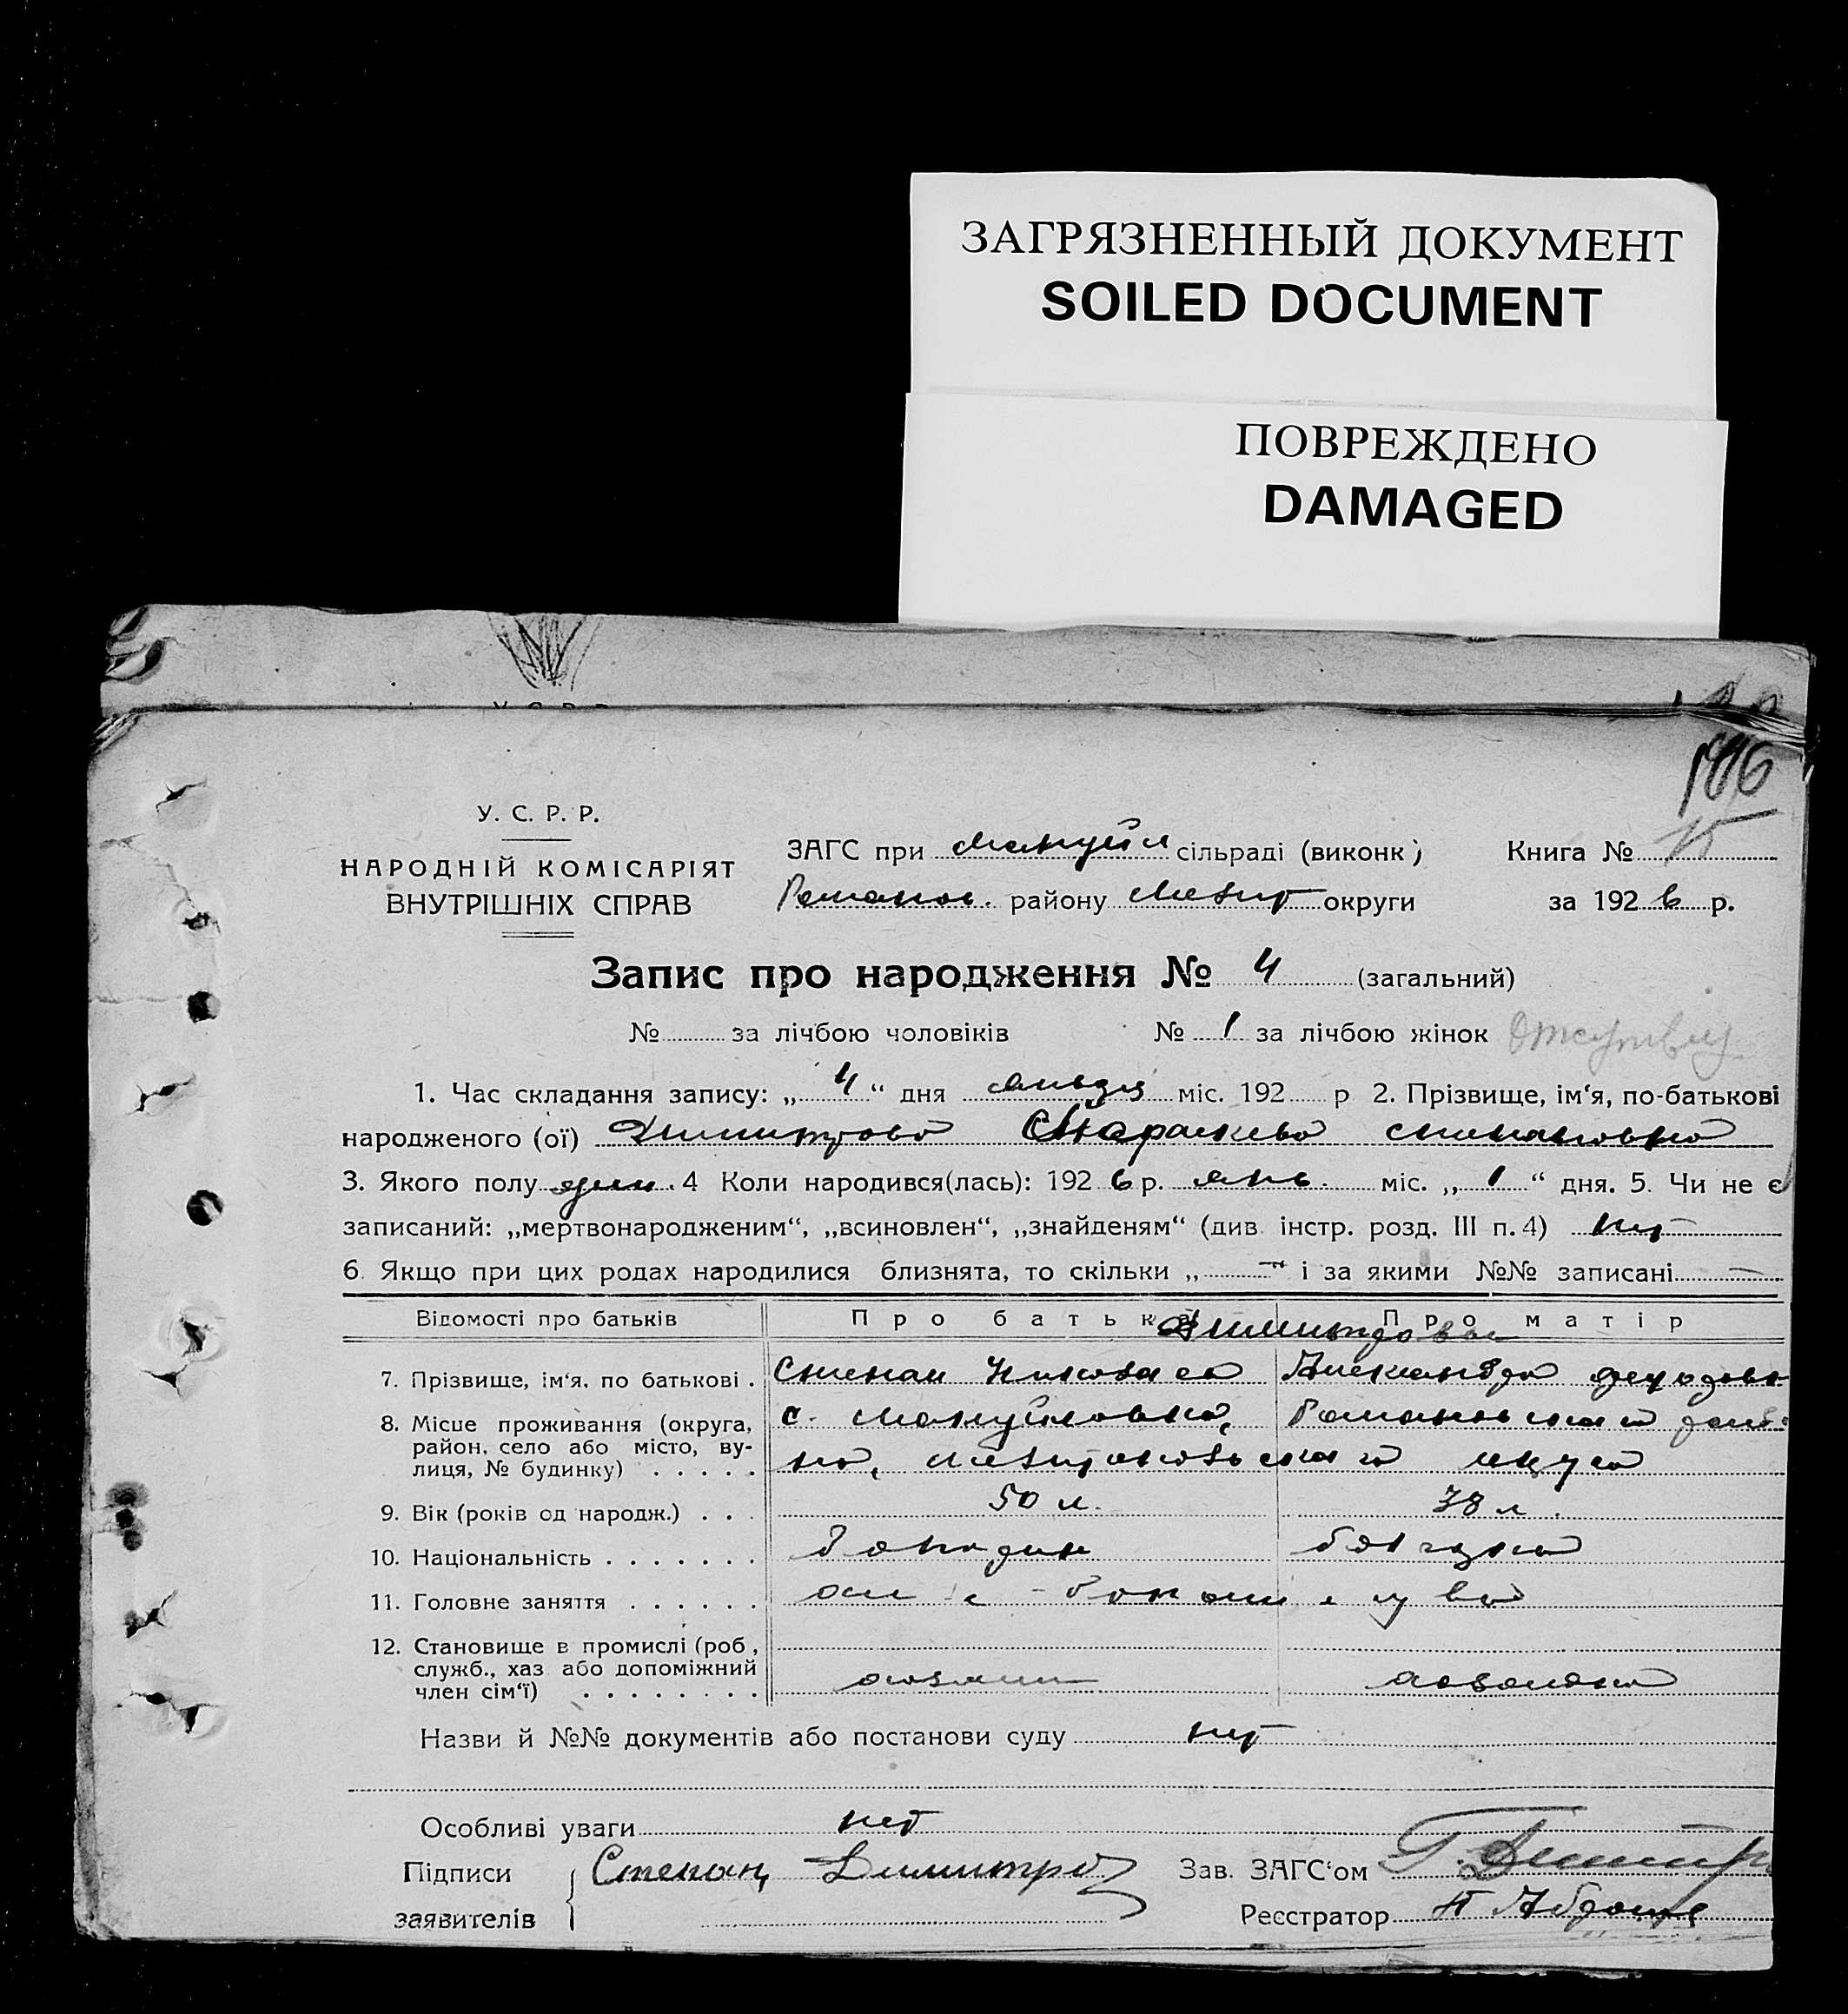 ЗАГРЯЗНЕННЫЙ ДОКУМЕНТ
SOILED DOCUMENT
ПОВРЕЖДЕНО
DAMAGED
У. С. Р. Р.
НАРОДНІЙ КОМІСАРІЯТ
ВНУТРІШНІХ СПРАВ
ЗАГС при Мануйл сільраді (виконк)
Романов. району Меліт округи
Книга №
за 1926 р.
Запис про народження № 4 (загальний)
№ за лічбою чоловіків № 1 за лічбою жінок
1. Час складання запису: „4“ дня января міс. 192 р 2. Прізвище, ім‘я, по-батькові
народженого (ої) Димитрова Параскева Степановна
3. Якого полу жен. 4 Коли народився(лась): 1926 р. янв. міс. „1“ дня. 5. Чи не є
записаний: „мертвонародженим“, „всиновлен“, „знайденям“ (див. інстр. розд. III п. 4) нет
6. Якщо при цих родах народилися близнята, то скільки „—“ і за якими №№ записані —
Відомості про батьків Про батька Про матір
Димитрова
7. Прізвище, ім‘я, по батькові . Степан Николаев Александра Федоровн
8. Місце проживання (округа,
район, село або місто, ву-
лиця, № будинку) . . . . .
с. Мануйловка, Романовского рай-
на, Мелитопольского округа
9. Вік (років од народж.) . . . 50 л. 38 л.
10. Національність . . . . . . . болгарин болгарка
11. Головне заняття . . . . . .
12. Становище в промислі (роб,
служб., хаз або допоміжний
член сім‘ї) . . . . . . . .
хозяин хозяйка
Назви й №№ документів або постанови суду нет
Особливі уваги нет
Підписи
заявителів
Степан Димитро
Зав. ЗАГС‘ом Г. Димитр
Реєстратор